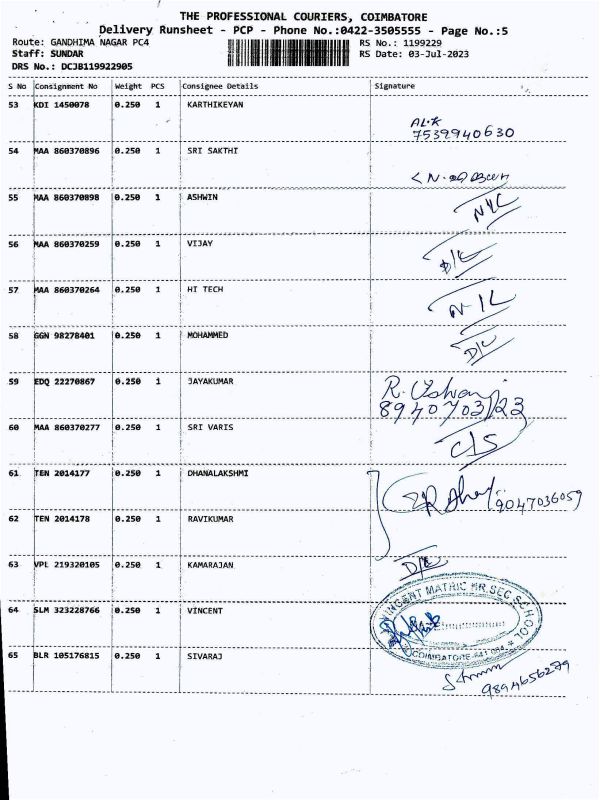 THE PROFESSIONAL COURIERS, COIMBATORE
Delivery Runsheet - PCP - Phone No.:0422-3505555 - Page No.:5
Route: GANDHIMA NAGAR PC4 RS No.: 1199229
Staff: SUNDAR RS Date: 03-Jul-2023
DRS No.: DCJB119922905
S No Consignment No Weight PCS Consignee Details Signature
53 KDI 1450078 0.250 1 KARTHIKEYAN
7539940630
54 MAA 860370896 0.250 1 SRI SAKTHI
55 MAA 860370898 0.250 1 ASHWIN
56 MAA 860370259 0.250 1 VIJAY
D/L
57 MAA 860370264 0.250 1 HI TECH
58 GGN 98278401 0.250 1 MOHAMMED
D/L
59 EDQ 22270867 0.250 1 JAYAKUMAR
8940703123
60 MAA 860370277 0.250 1 SRI VARIS
C/S
61 TEN 2014177 0.250 1 DHANALAKSHMI
9047036059
62 TEN 2014178 0.250 1 RAVIKUMAR
63 VPL 219320105 0.250 1 KAMARAJAN
D/L
64 SLM 323228766 0.250 1 VINCENT
VINCENT MATRIC HR.SEC SCHOOL
COIMBATORE
65 BLR 105176815 0.250 1 SIVARAJ
9894656279